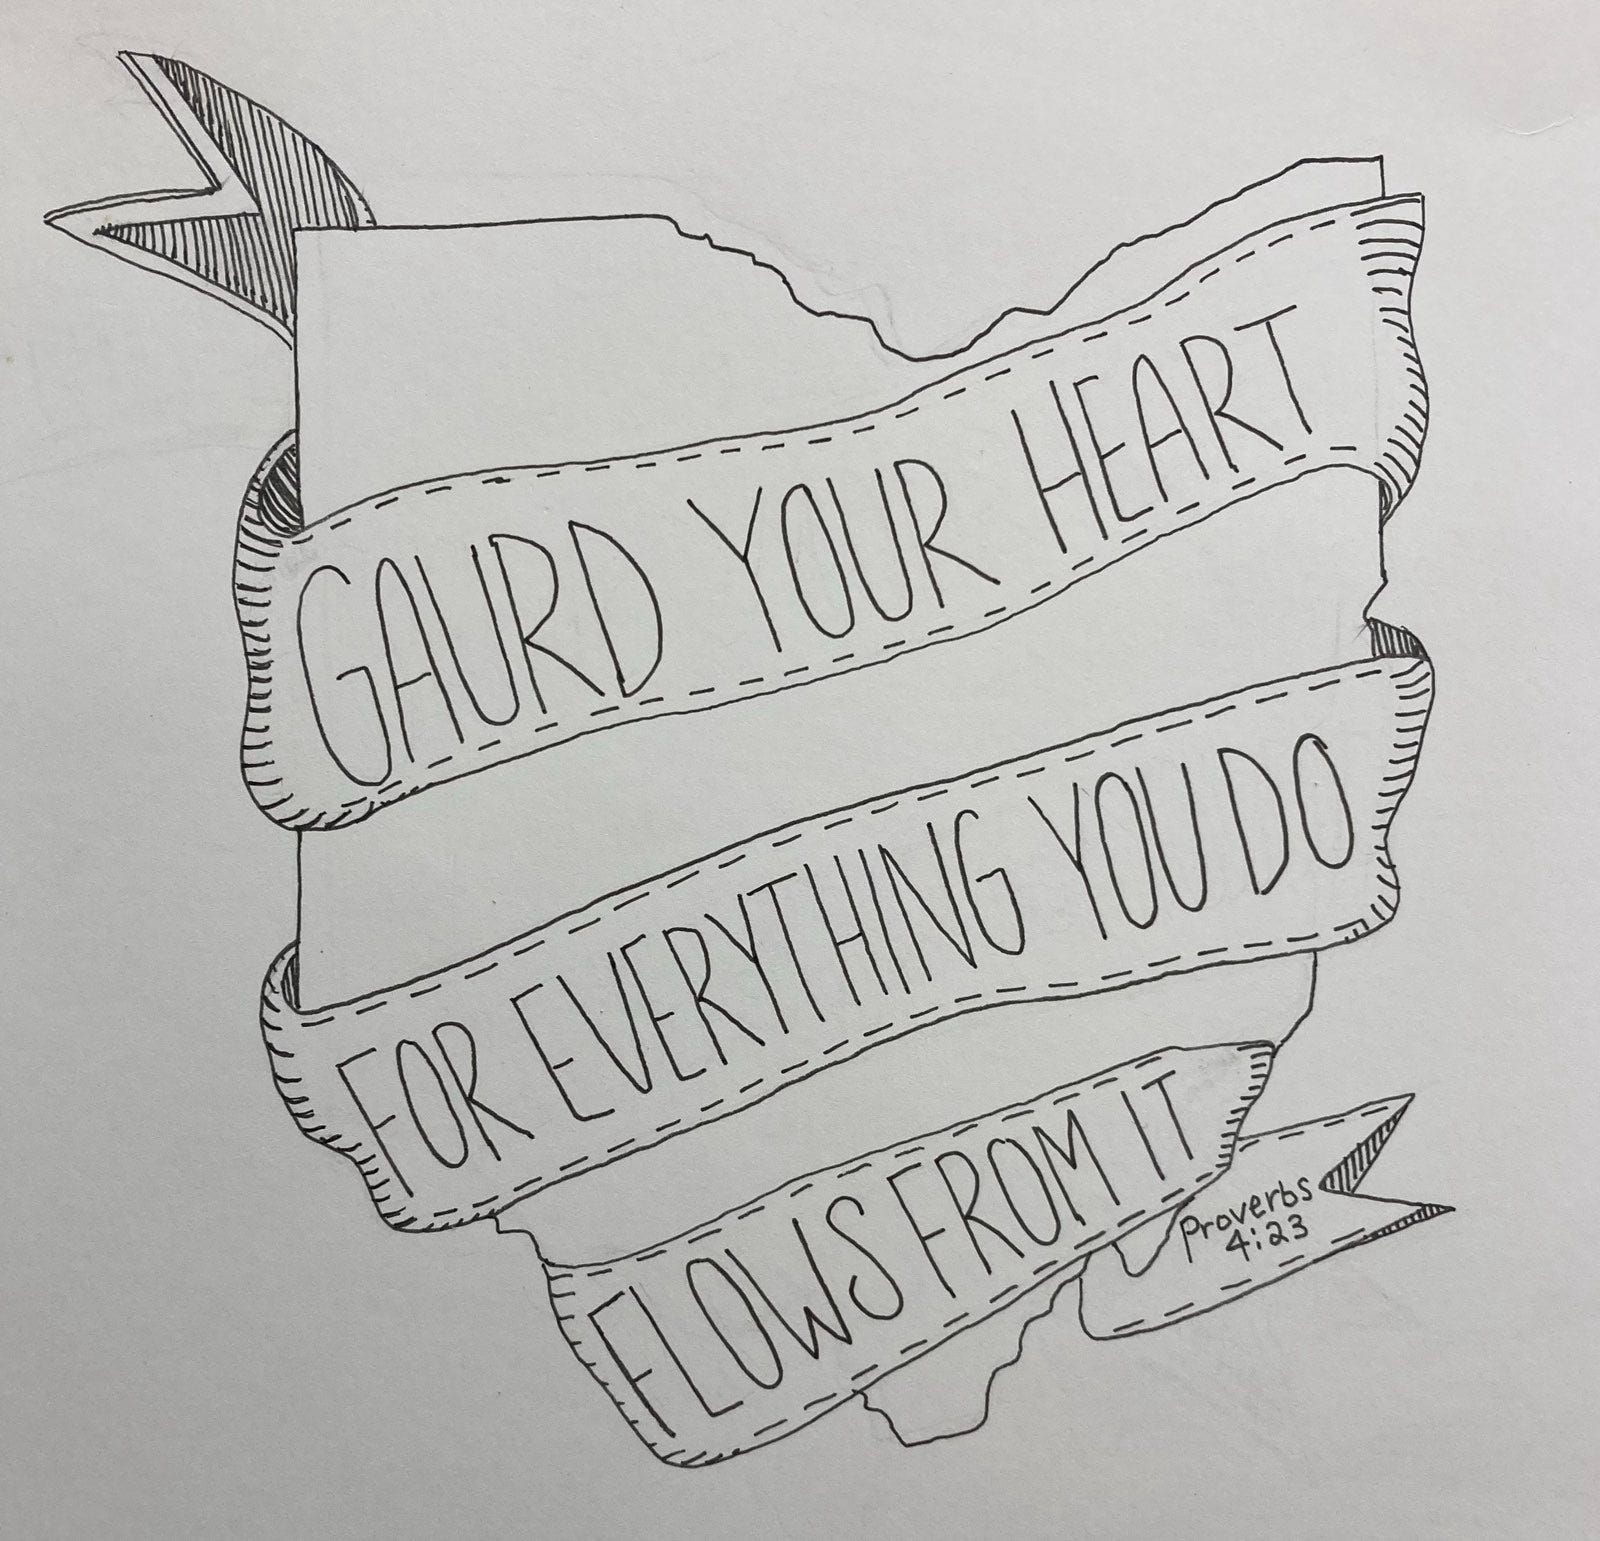 GAURD YOUR HEART
FOR EVERYTHING YOU DO
FLOWS FROM IT
Proverbs
4:23